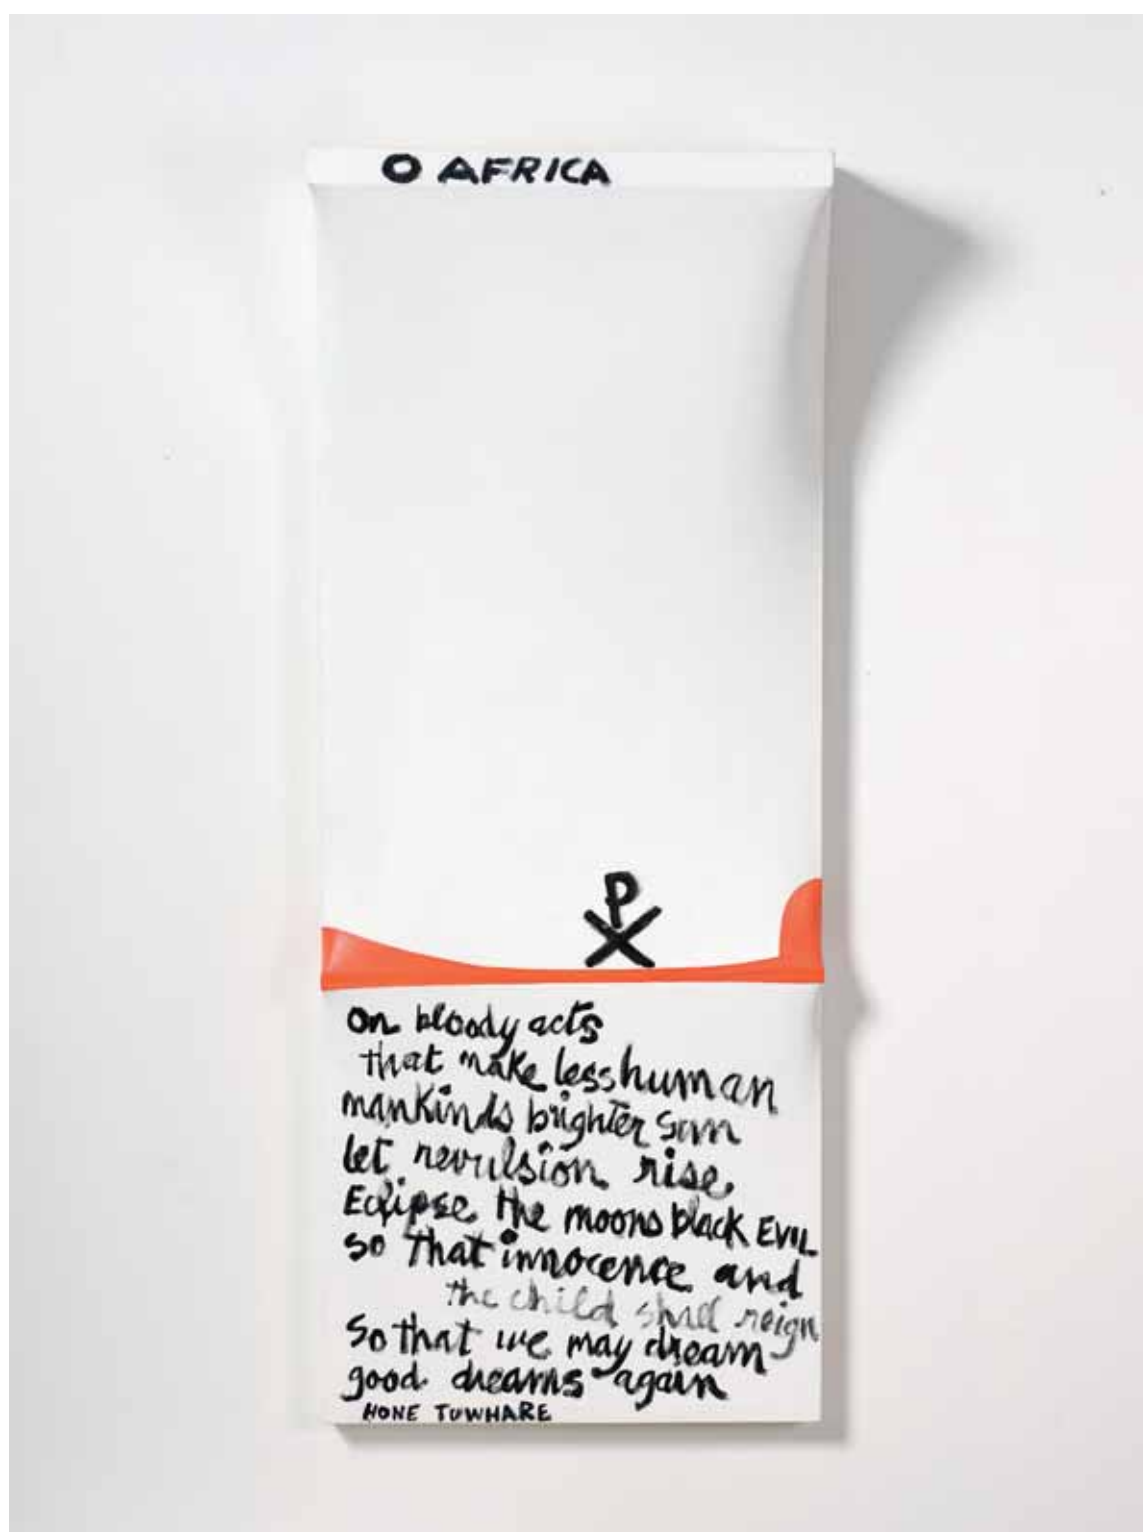 O AFRICA
P
X
on bloody acts
that make less human
mankinds brighter sun
let revulsion rise
Eclipse the moons black EVIL
so that innocence and
the child shall reign
So that we may dream
good dreams again
HONE TUWHARE